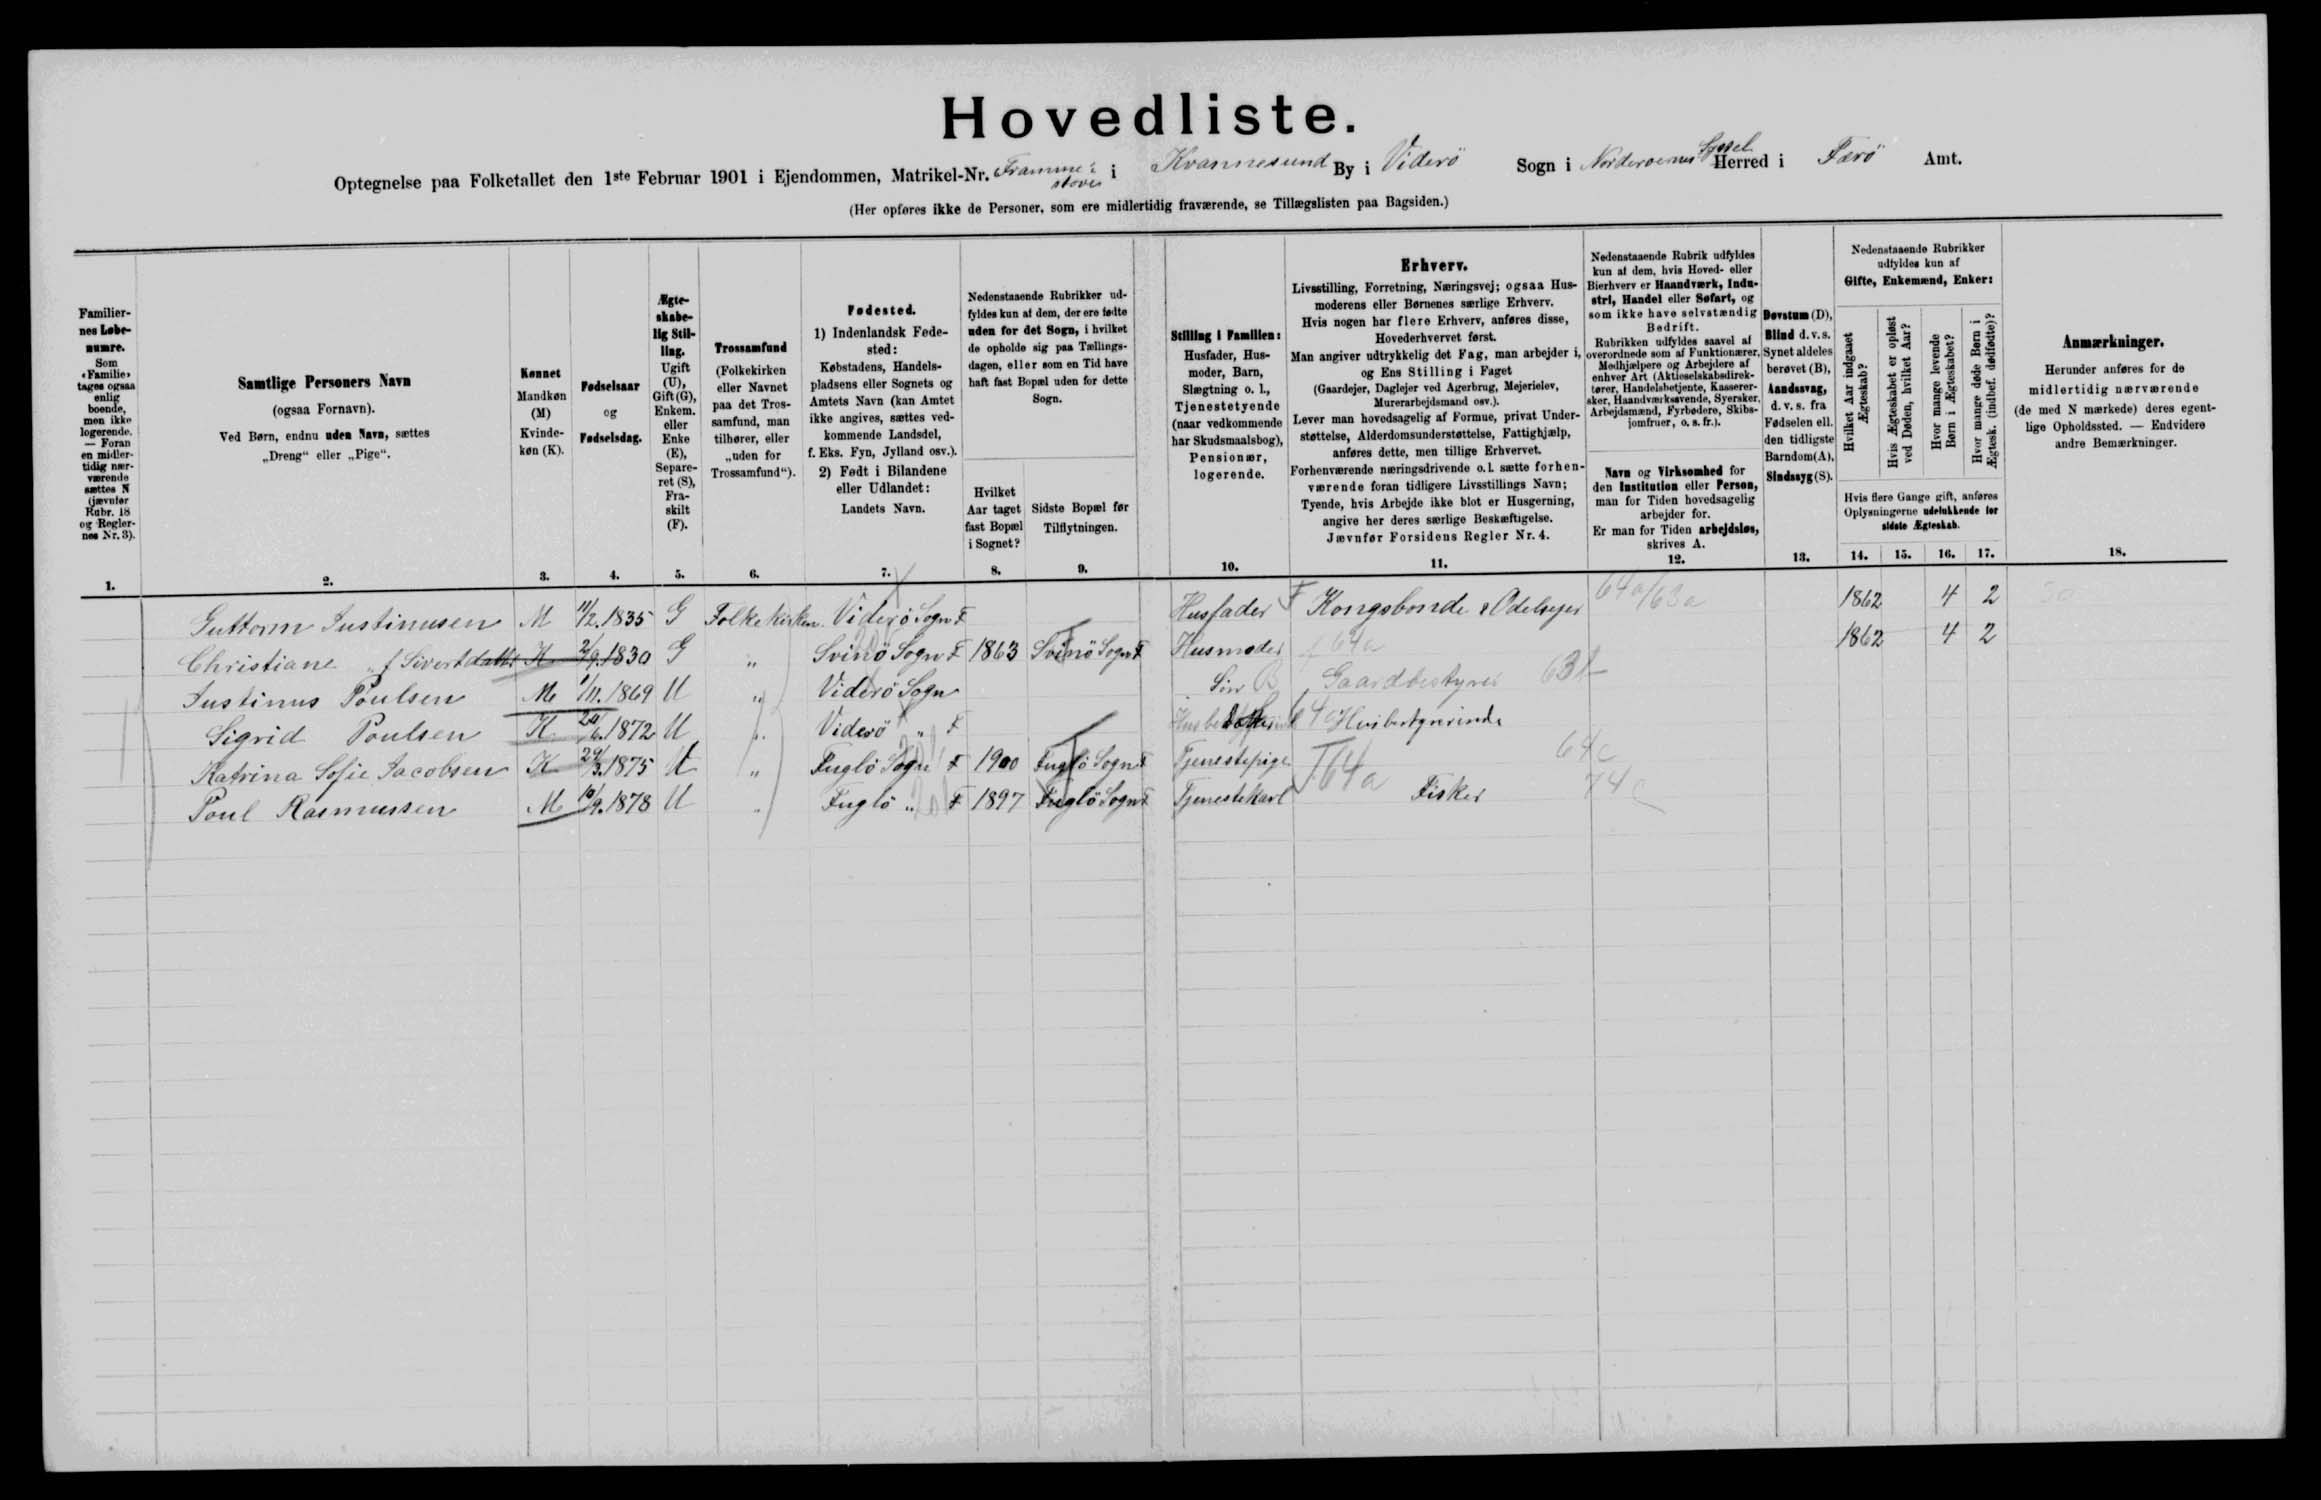 Hovedliste.
Optegnelse paa Folketallet den 1ste Februar 1901 i Ejendommen, Matrikel-Nr. Framme i stove i Kvannesund By i Viderö Sogn i Norderoernes Syssel Herred i Færö Amt.
(Her opføres ikke de Personer, som ere midlertidig fraværende, se Tillægslisten paa Bagsiden.)
Familiernes Løbenumre.
Som «Familie» tages ogsaa enlig boende, men ikke logerende. — Foran en midlertidig nærværende sættes N (jævnfør Rubr. 18 og Reglernes Nr. 3).
1.
Samtlige Personers Navn
(ogsaa Fornavn).
Ved Børn, endnu uden Navn, sættes
„Dreng“ eller „Pige“.
2.
Kønnet
Mandkøn (M)
Kvindekøn (K).
3.
Fødselsaar
og
Fødselsdag.
4.
Ægteskabelig Stilling.
Ugift (U), Gift (G), Enkem. eller Enke (E), Separeret (S), Fraskilt (F).
5.
Trossamfund
(Folkekirken eller Navnet paa det Trossamfund, man tilhører, eller „uden for Trossamfund“).
6.
Fødested.
1) Indenlandsk Fødested:
Købstadens, Handelspladsens eller Sognets og Amtets Navn (kan Amtet ikke angives, sættes vedkommende Landsdel, f. Eks. Fyn, Jylland osv.).
2) Født i Bilandene eller Udlandet:
Landets Navn.
7.
Nedenstaaende Rubrikker udfyldes kun af dem, der ere fødte uden for det Sogn, i hvilket de opholde sig paa Tællingsdagen, eller som en Tid have haft fast Bopæl uden for dette Sogn.
Hvilket Aar taget fast Bopæl i Sognet?
8.
Sidste Bopæl før Tilflytningen.
9.
Stilling i Familien:
Husfader, Husmoder, Barn, Slægtning o. l., Tjenestetyende (naar vedkommende har Skudsmaalsbog), Pensionær, logerende.
10.
Erhverv.
Livsstilling, Forretning, Næringsvej; ogsaa Husmoderens eller Børnenes særlige Erhverv.
Hvis nogen har flere Erhverv, anføres disse, Hovederhvervet først.
Man angiver udtrykkelig det Fag, man arbejder i, og Ens Stilling i Faget
(Gaardejer, Daglejer ved Agerbrug, Mejerielev, Murerarbejdsmand osv.).
Lever man hovedsagelig af Formue, privat Understøttelse, Alderdomsunderstøttelse, Fattighjælp, anføres dette, men tillige Erhvervet.
Forhenværende næringsdrivende o. l. sætte forhenværende foran tidligere Livsstillings Navn;
Tyende, hvis Arbejde ikke blot er Husgerning, angive her deres særlige Beskæftigelse.
Jævnfør Forsidens Regler Nr. 4.
11.
Nedenstaaende Rubrik udfyldes kun af dem, hvis Hoved- eller Bierhverv er Haandværk, Industri, Handel eller Søfart, og som ikke have selvstændig Bedrift.
Rubrikken udfyldes saavel af overordnede som af Funktionærer, Medhjælpere og Arbejdere af enhver Art (Aktieselskabsdirektører, Handelsbetjente, Kasserersker, Haandværkssvende, Syersker, Arbejdsmænd, Fyrbødere, Skibsjomfruer, o. s. fr.).
Navn og Virksomhed for den Institution eller Person, man for Tiden hovedsagelig arbejder for.
Er man for Tiden arbejdsløs, skrives A.
12.
Døvstum (D), Blind d. v. s. Synet aldeles berøvet (B), Aandssvag, d. v. s. fra Fødselen ell. den tidligste Barndom (A), Sindssyg (S).
13.
Nedenstaaende Rubrikker udfyldes kun af
Gifte, Enkemænd, Enker:
Hvilket Aar indgaaet Ægteskab?
Hvis Ægteskabet er opløst ved Døden, hvilket Aar?
Hvor mange levende Børn i Ægteskabet?
Hvor mange døde Børn i Ægtesk. (indbef. dødfødte)?
Hvis flere Gange gift, anføres Oplysningerne udelukkende for sidste Ægteskab.
14. 15. 16. 17.
Anmærkninger.
Herunder anføres for de midlertidig nærværende (de med N mærkede) deres egentlige Opholdssted. — Endvidere andre Bemærkninger.
18.
Guttorm Justinusen M 11/2.1835 G Folkekirken Viderö Sogn F Husfader F Kongsbonde & Odelsejer 64a/63a 1862 4 2
Christiane „ f Sivertdatter K 2/9.1830 G „ Svinö Sogn F 1863 Svinö Sogn F Husmoder f 64a 1862 4 2
Justinus Poulsen M 1/11.1869 U „ Viderö Sogn Sön B Gaardbestyrer 63b
Sigrid Poulsen K 24/6.1872 U „ Viderö „ F Datter Husbestyrerinde
Katrina Sofie Jacobsen K 29/3.1875 U „ Fuglö Sogn F 1900 Fuglö Sogn F Tjenestepige T 64a 64c
Poul Rasmussen M 10/9.1878 U „ Fuglö „ F 1897 Fuglö Sogn F Tjenestekarl Fisker 74c